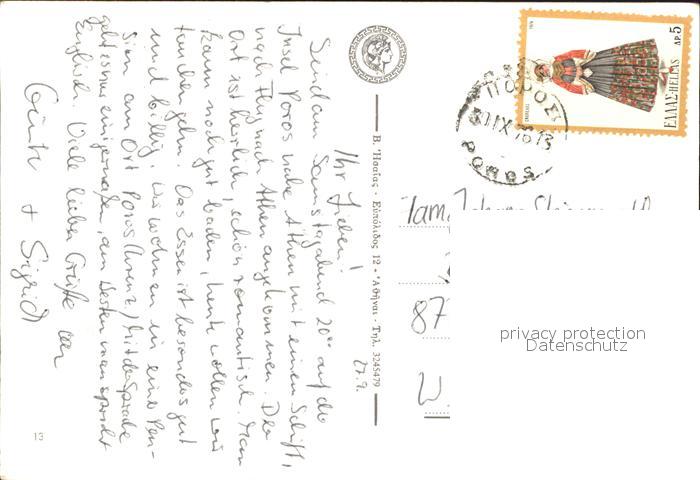 Ihr Lieben!
27.9.
Sind am Samstagabend 20°° auf die
Insel Poros nahe Athen mit einem Schiff,
nach Flug nach Athen angekommen. Der
Ort ist herrlich, schön romantisch. Man
kann noch gut baden, heute wollen wir
tauchen gehn. Das Essen ist besonders gut
und billig, wir wohnen in einer Pen-
sion am Ort Poros Mit der Sprache
geht es nur einigermaßen, am besten man spricht
Englisch. Viele liebe Grüße von
+ Sigrid
Β. Ησαΐας - Ευπόλιδος 12 - Ἀθῆναι - Τηλ. 3245479
13
ΕΛΛΑΣ-HELLAS
ΔΡ. 5
ΠΟΡΟΣ
POROS
Fam.
87
W.
privacy protection
Datenschutz